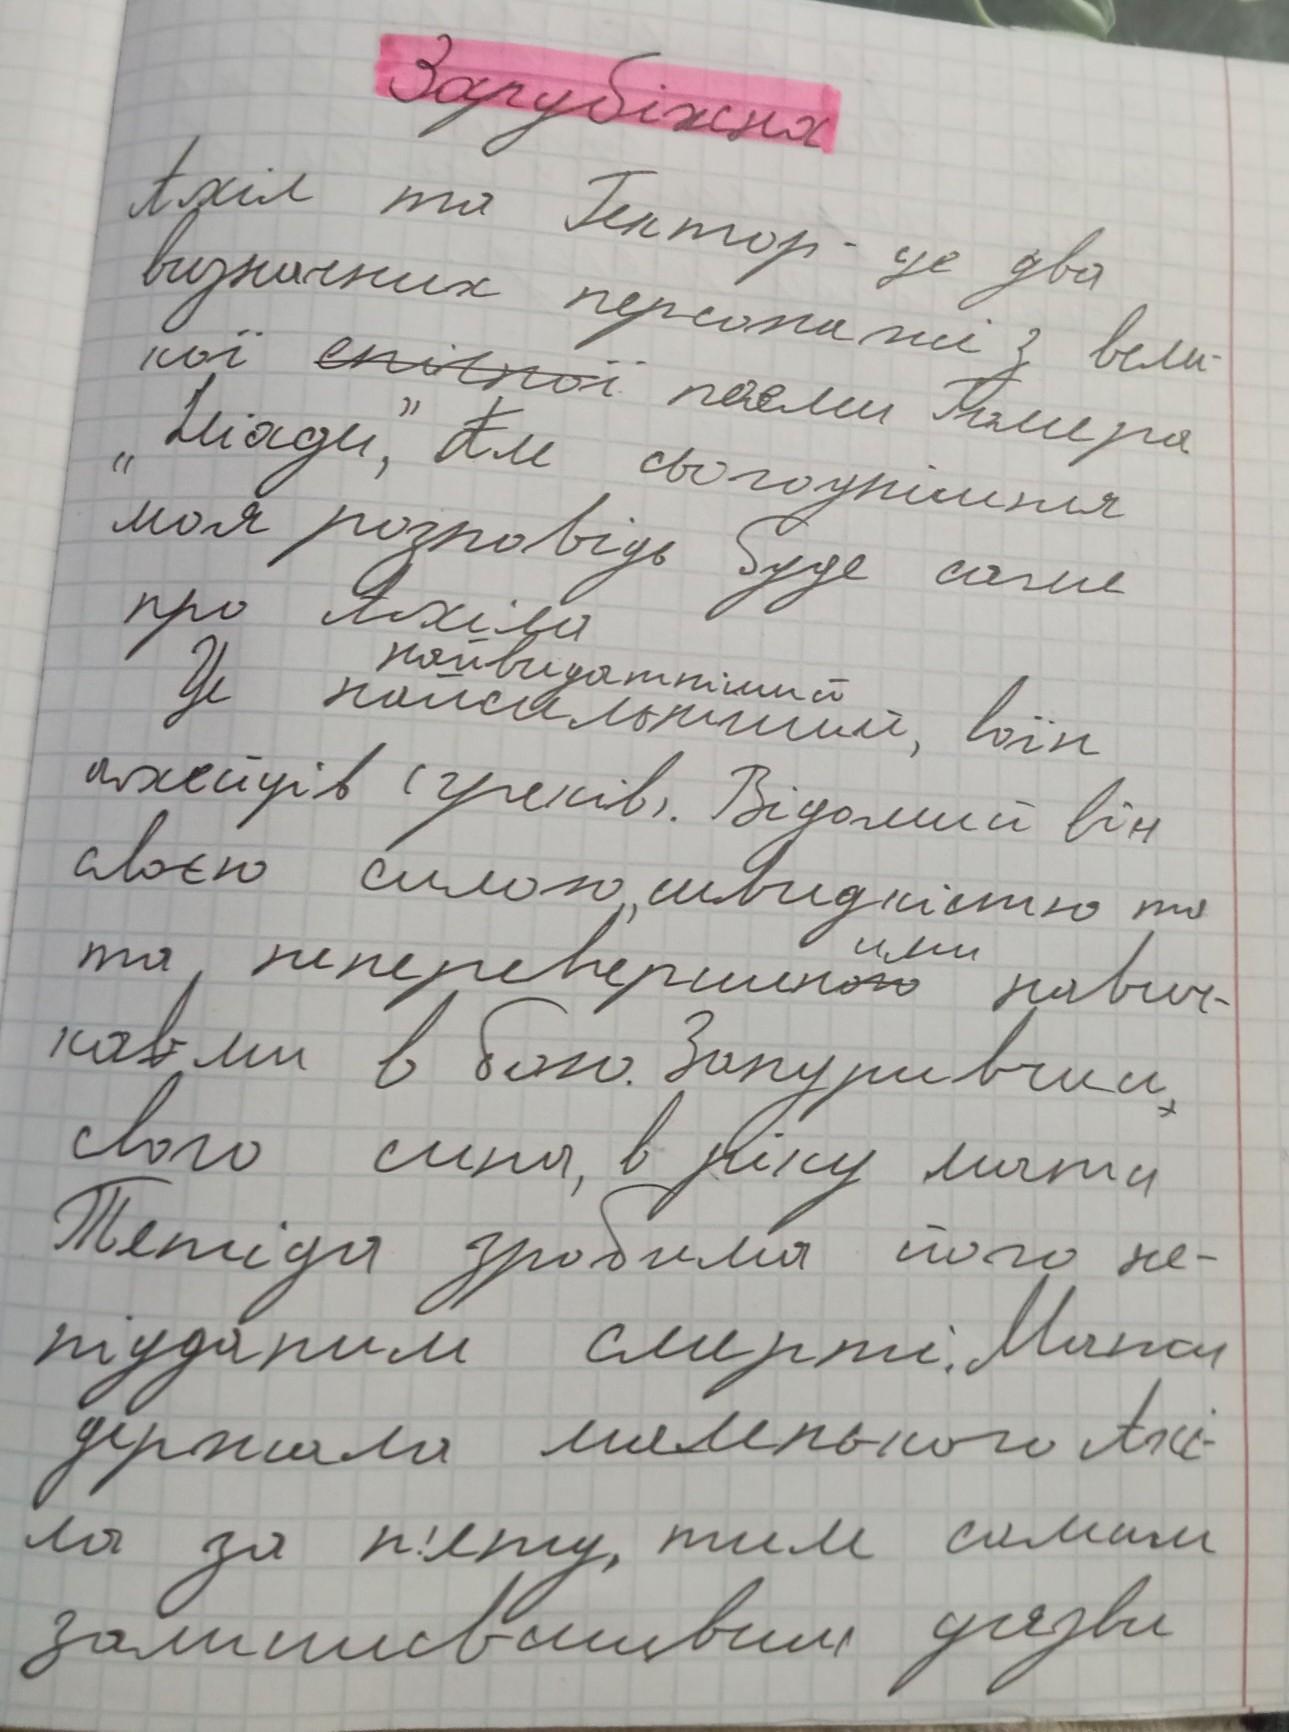 Зарубіжна
Ахіл та Гектор - це два
визначних персонажі з вели-
кої епічної поеми Гомера
„Іліади,” Але сьогоднішня
моя розповідь буде саме
про Ахіла
найвидатніший
Це найсильніший, воїн
ахейців (греків). Відомий він
своєю силою, швидкістю та
ими
та неперевершеною навич-
ками в бою. Зануривши,
свого сина, в ріку мати
Тетіда зробила його не-
піддатним смерті. Мати
держала маленького Ахі-
ла за п'яту, тим самим
уязви